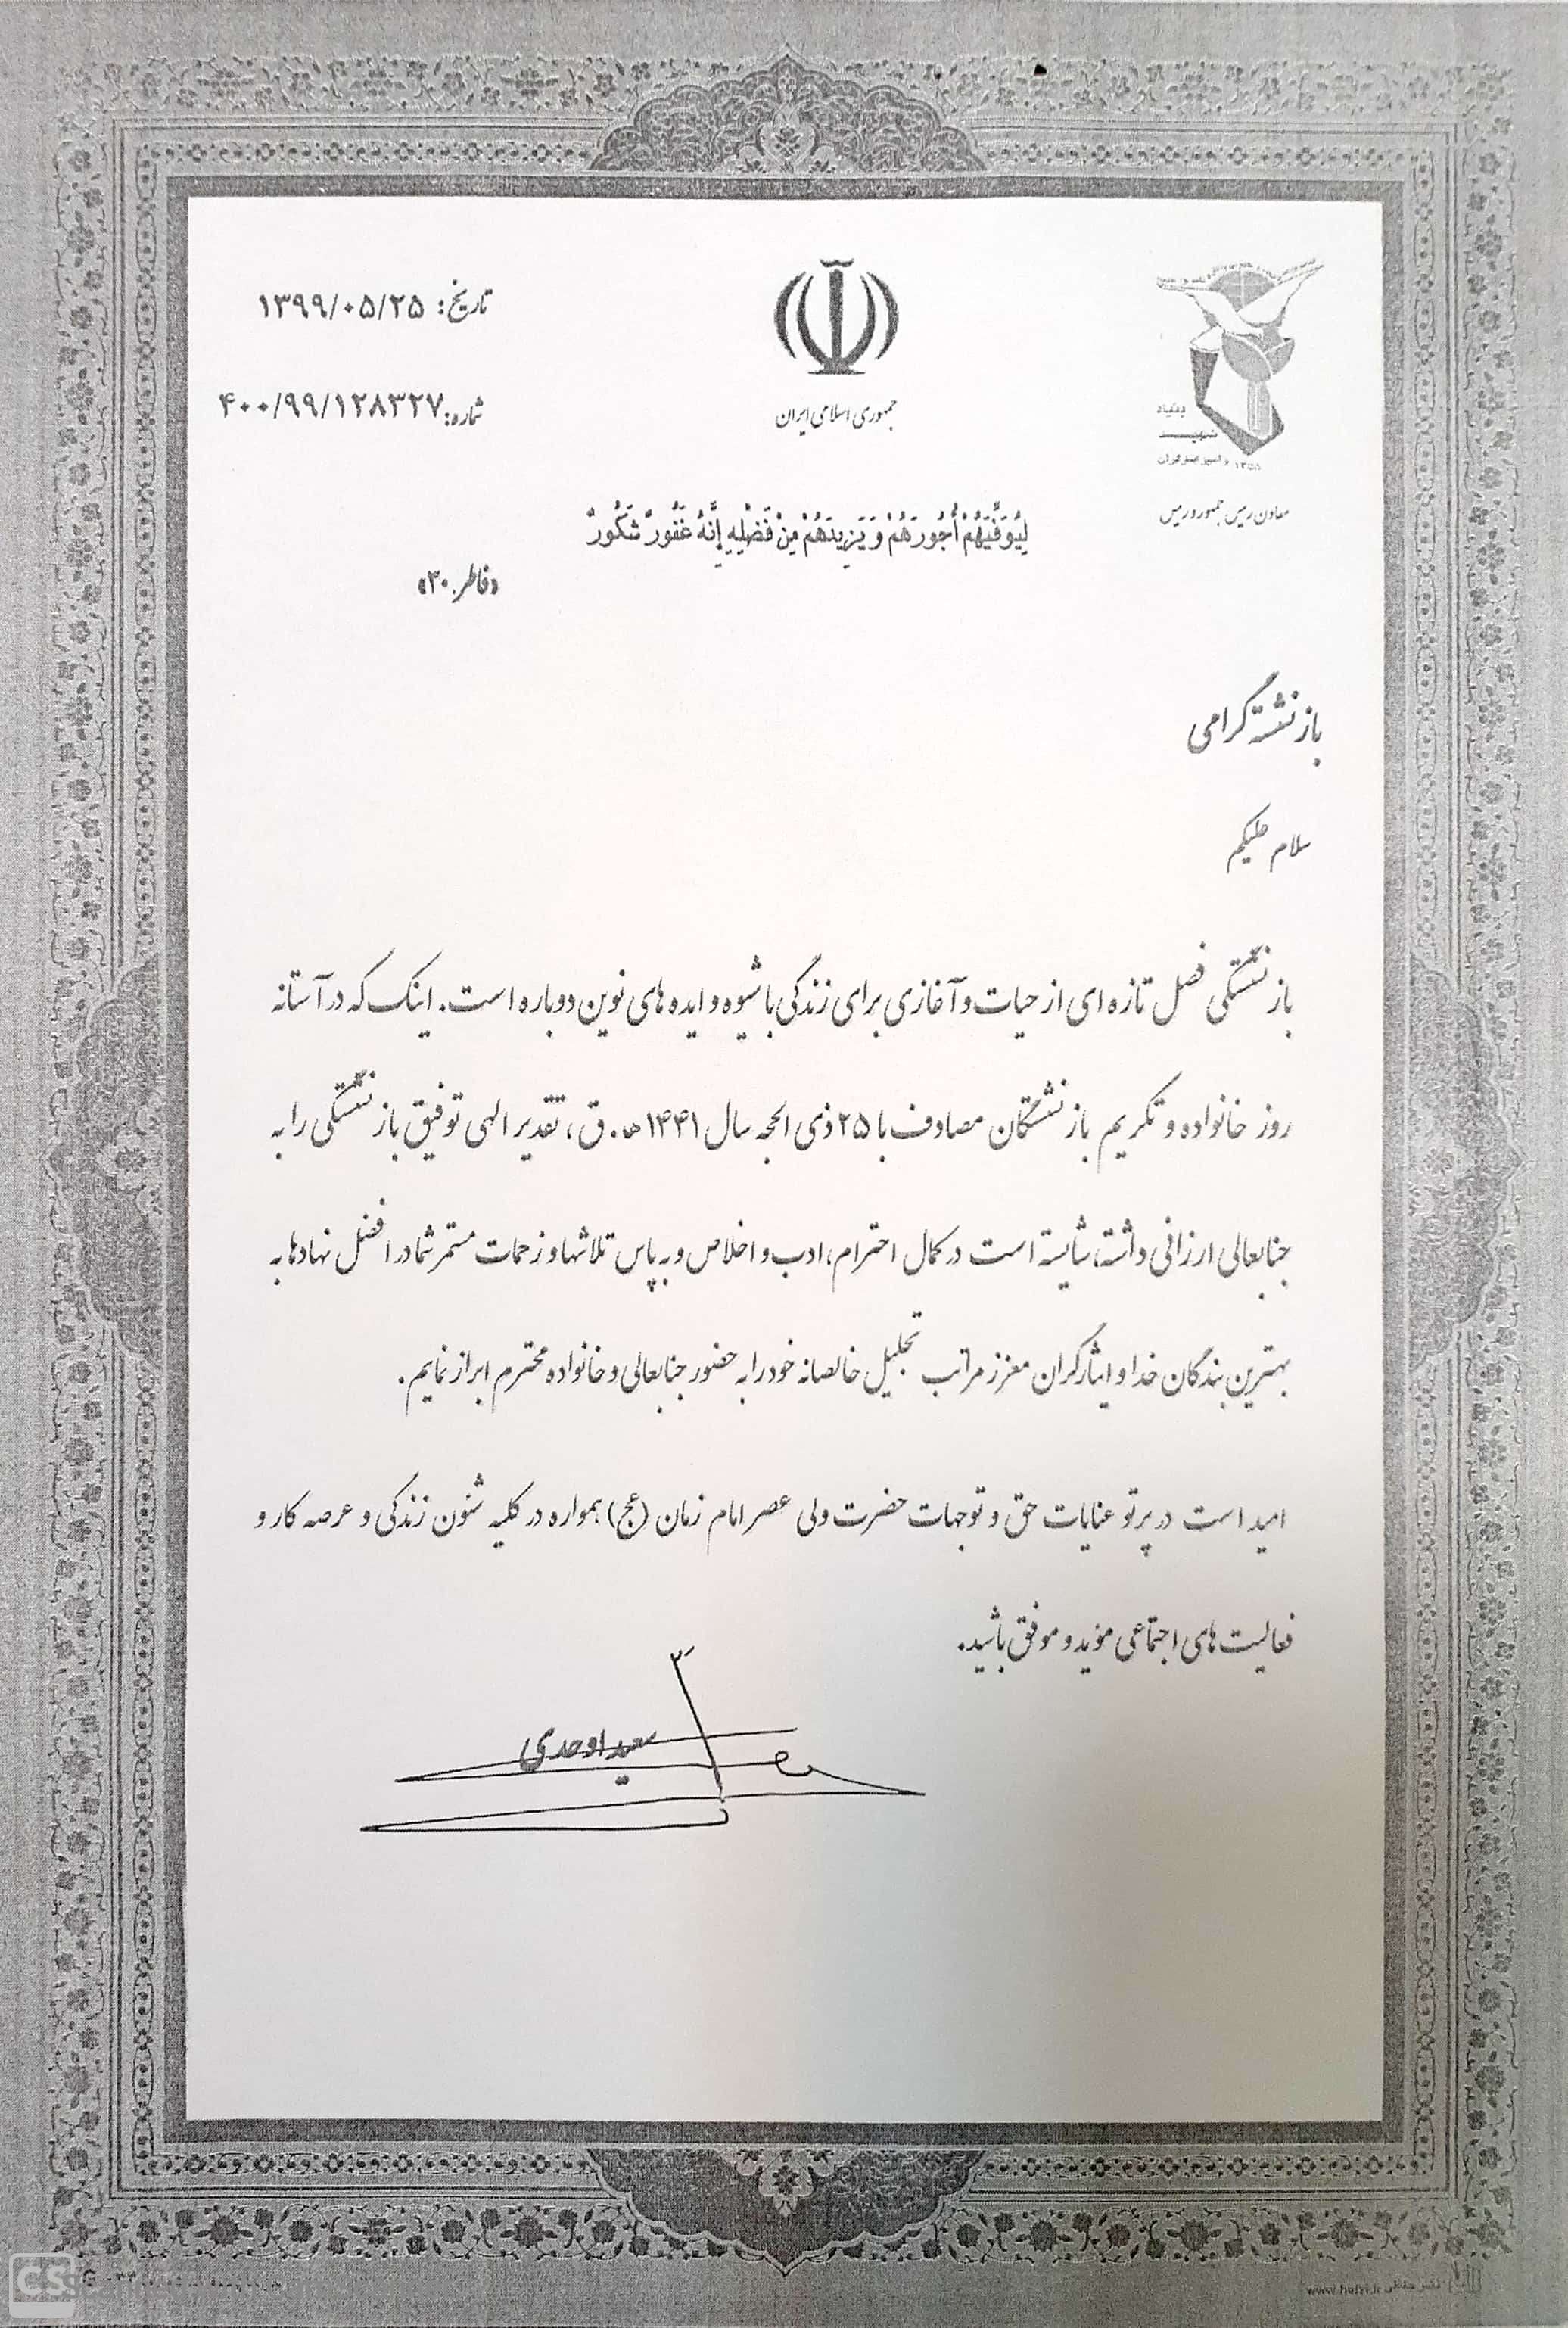 تاریخ: ۱۳۹۹/۰۵/۲۵
شماره: ۴۰۰/۹۹/۱۲۸۳۲۷
جمهوری اسلامی ایران
بنیاد
شهید
و امور ایثارگران ۱۳۵۸
معاون رییس جمهور و رییس
لِيُوَفِّيَهُمْ أُجُورَهُمْ وَيَزِيدَهُمْ مِنْ فَضْلِهِ إِنَّهُ غَفُورٌ شَكُورٌ
«فاطر.۳۰»
بازنشسته گرامی
سلام علیکم
بازنشستگی فصل تازه ای از حیات و آغازی برای زندگی با شیوه و ایده های نوین دوباره است. اینک که در آستانه
روز خانواده و تکریم بازنشستگان مصادف با ۲۵ ذی الحجه سال ۱۴۴۱ ه.ق، تقدیر الهی توفیق بازنشستگی را به
جنابعالی ارزانی داشته، شایسته است در کمال احترام، ادب و اخلاص و به پاس تلاشها و زحمات مستمر شما در افضل نهادها به
بهترین بندگان خدا و ایثارگران معزز مراتب تجلیل خالصانه خود را به حضور جنابعالی و خانواده محترم ابراز نمایم.
امید است در پرتو عنایات حق و توجهات حضرت ولی عصر امام زمان (عج) همواره در کلیه شئون زندگی و عرصه کار و
فعالیت های اجتماعی مؤید و موفق باشید.
سعید اوحدی
CS
www.hafzi.ir